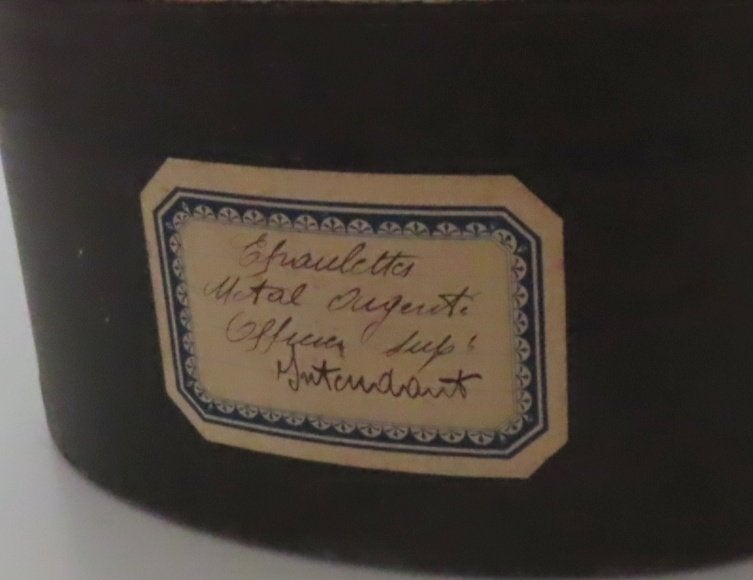 Epaulettes
Metal argenté
Officier supʳ
Intendant